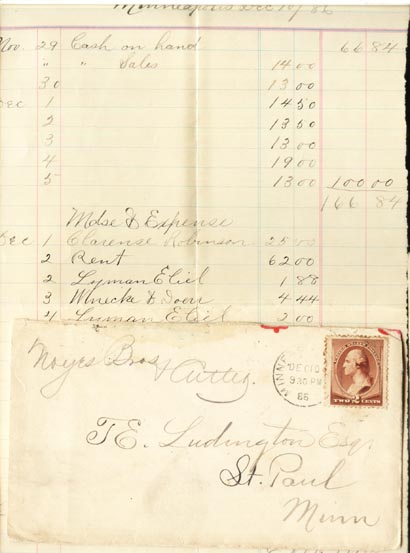 Minneapolis Dec 10/86
Nov. 29 Cash on hand 66 84
" " Sales 14 00
30 13 00
Dec 1 14 50
2 13 50
3 13 00
4 19 00
5 13 00 100 00
166 84
Mdse & Expense
Dec 1 Clarense Robinson 25 00
2 Rent 62 00
2 Lyman Eliel 1 88
3 & Door 4 44
4 Lyman Eliel 2 00
Noyes Bros & Cutler.
MINN
DEC 10
9 30 PM
86
TWO 2 CENTS
T.E. Ludington Esq.
St. Paul
Minn